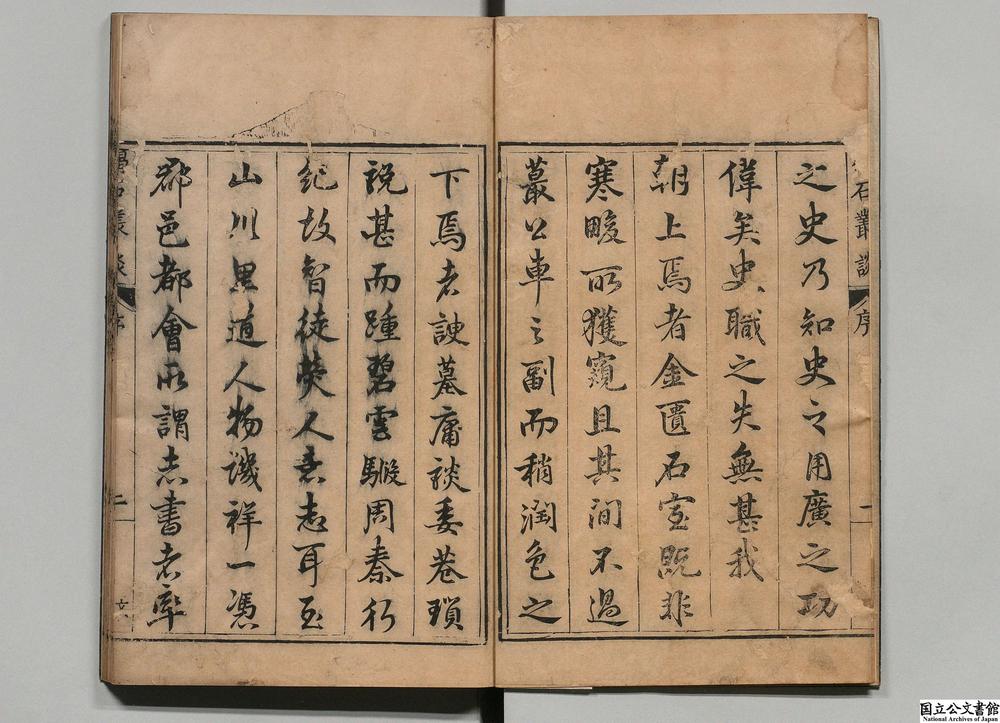 石叢談 序 一
之史乃知史之用廣之功
偉矣史職之失無甚我
朝上焉者金匱石室既非
寒畯所獲窺且其間不過
蕞公車之副而稍潤色之
下焉者諛墓庸談委巷瑣
說甚而踵碧雲騢周秦行
紀故智徒熒人意志耳至
山川里道人物譏祥一憑
郡邑都會所謂志書者率
序 二
国立公文書館
National Archives of Japan